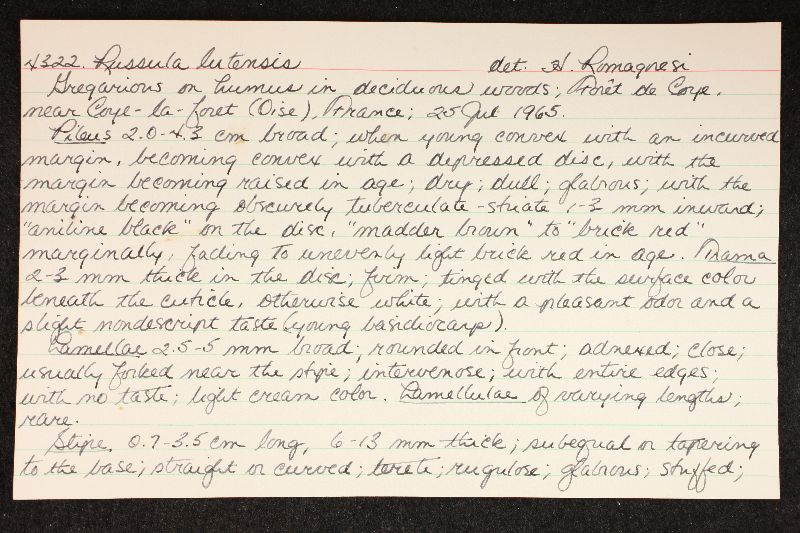 4322. Russula lutensis det. H. Romagnesi
Gregarious on humus in deciduous woods, Forêt de Coye,
near Coye-la-foret (Oise), France; 25 Jul 1965.
Pileus 2.0-4.3 cm broad; when young convex with an incurved
margin, becoming convex with a depressed disc, with the
margin becoming raised in age; dry; dull; glabrous; with the
margin becoming obscurely tuberculate-striate 1-3 mm inward;
"aniline black" on the disc, "madder brown" to "brick red"
marginally, fading to unevenly light brick red in age. Trama
2-3 mm thick in the disc; firm; tinged with the surface color
beneath the cuticle, otherwise white; with a pleasant odor and a
slight nondescript taste (young basidiocarp).
Lamellae 2.5-5 mm broad; rounded in front; adnexed; close;
usually forked near the stipe; intervenose; with entire edges;
with no taste; light cream color. Lamellulae of varying lengths;
rare.
Stipe. 0.7-3.5 cm long, 6-13 mm thick; subequal or tapering
to the base; straight or curved; terete; rugulose; glabrous; stuffed;